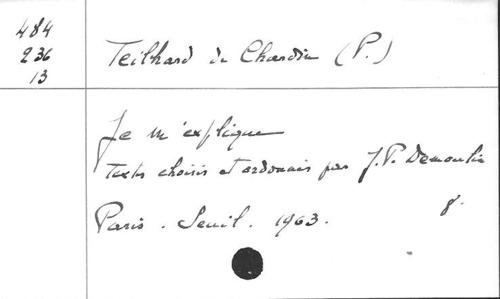 484
236
13
Teilhard de Chardin (P.)
Je m'explique
textes choisis et ordonnés par J.P. Demoulin
Paris. Seuil. 1963. 8.